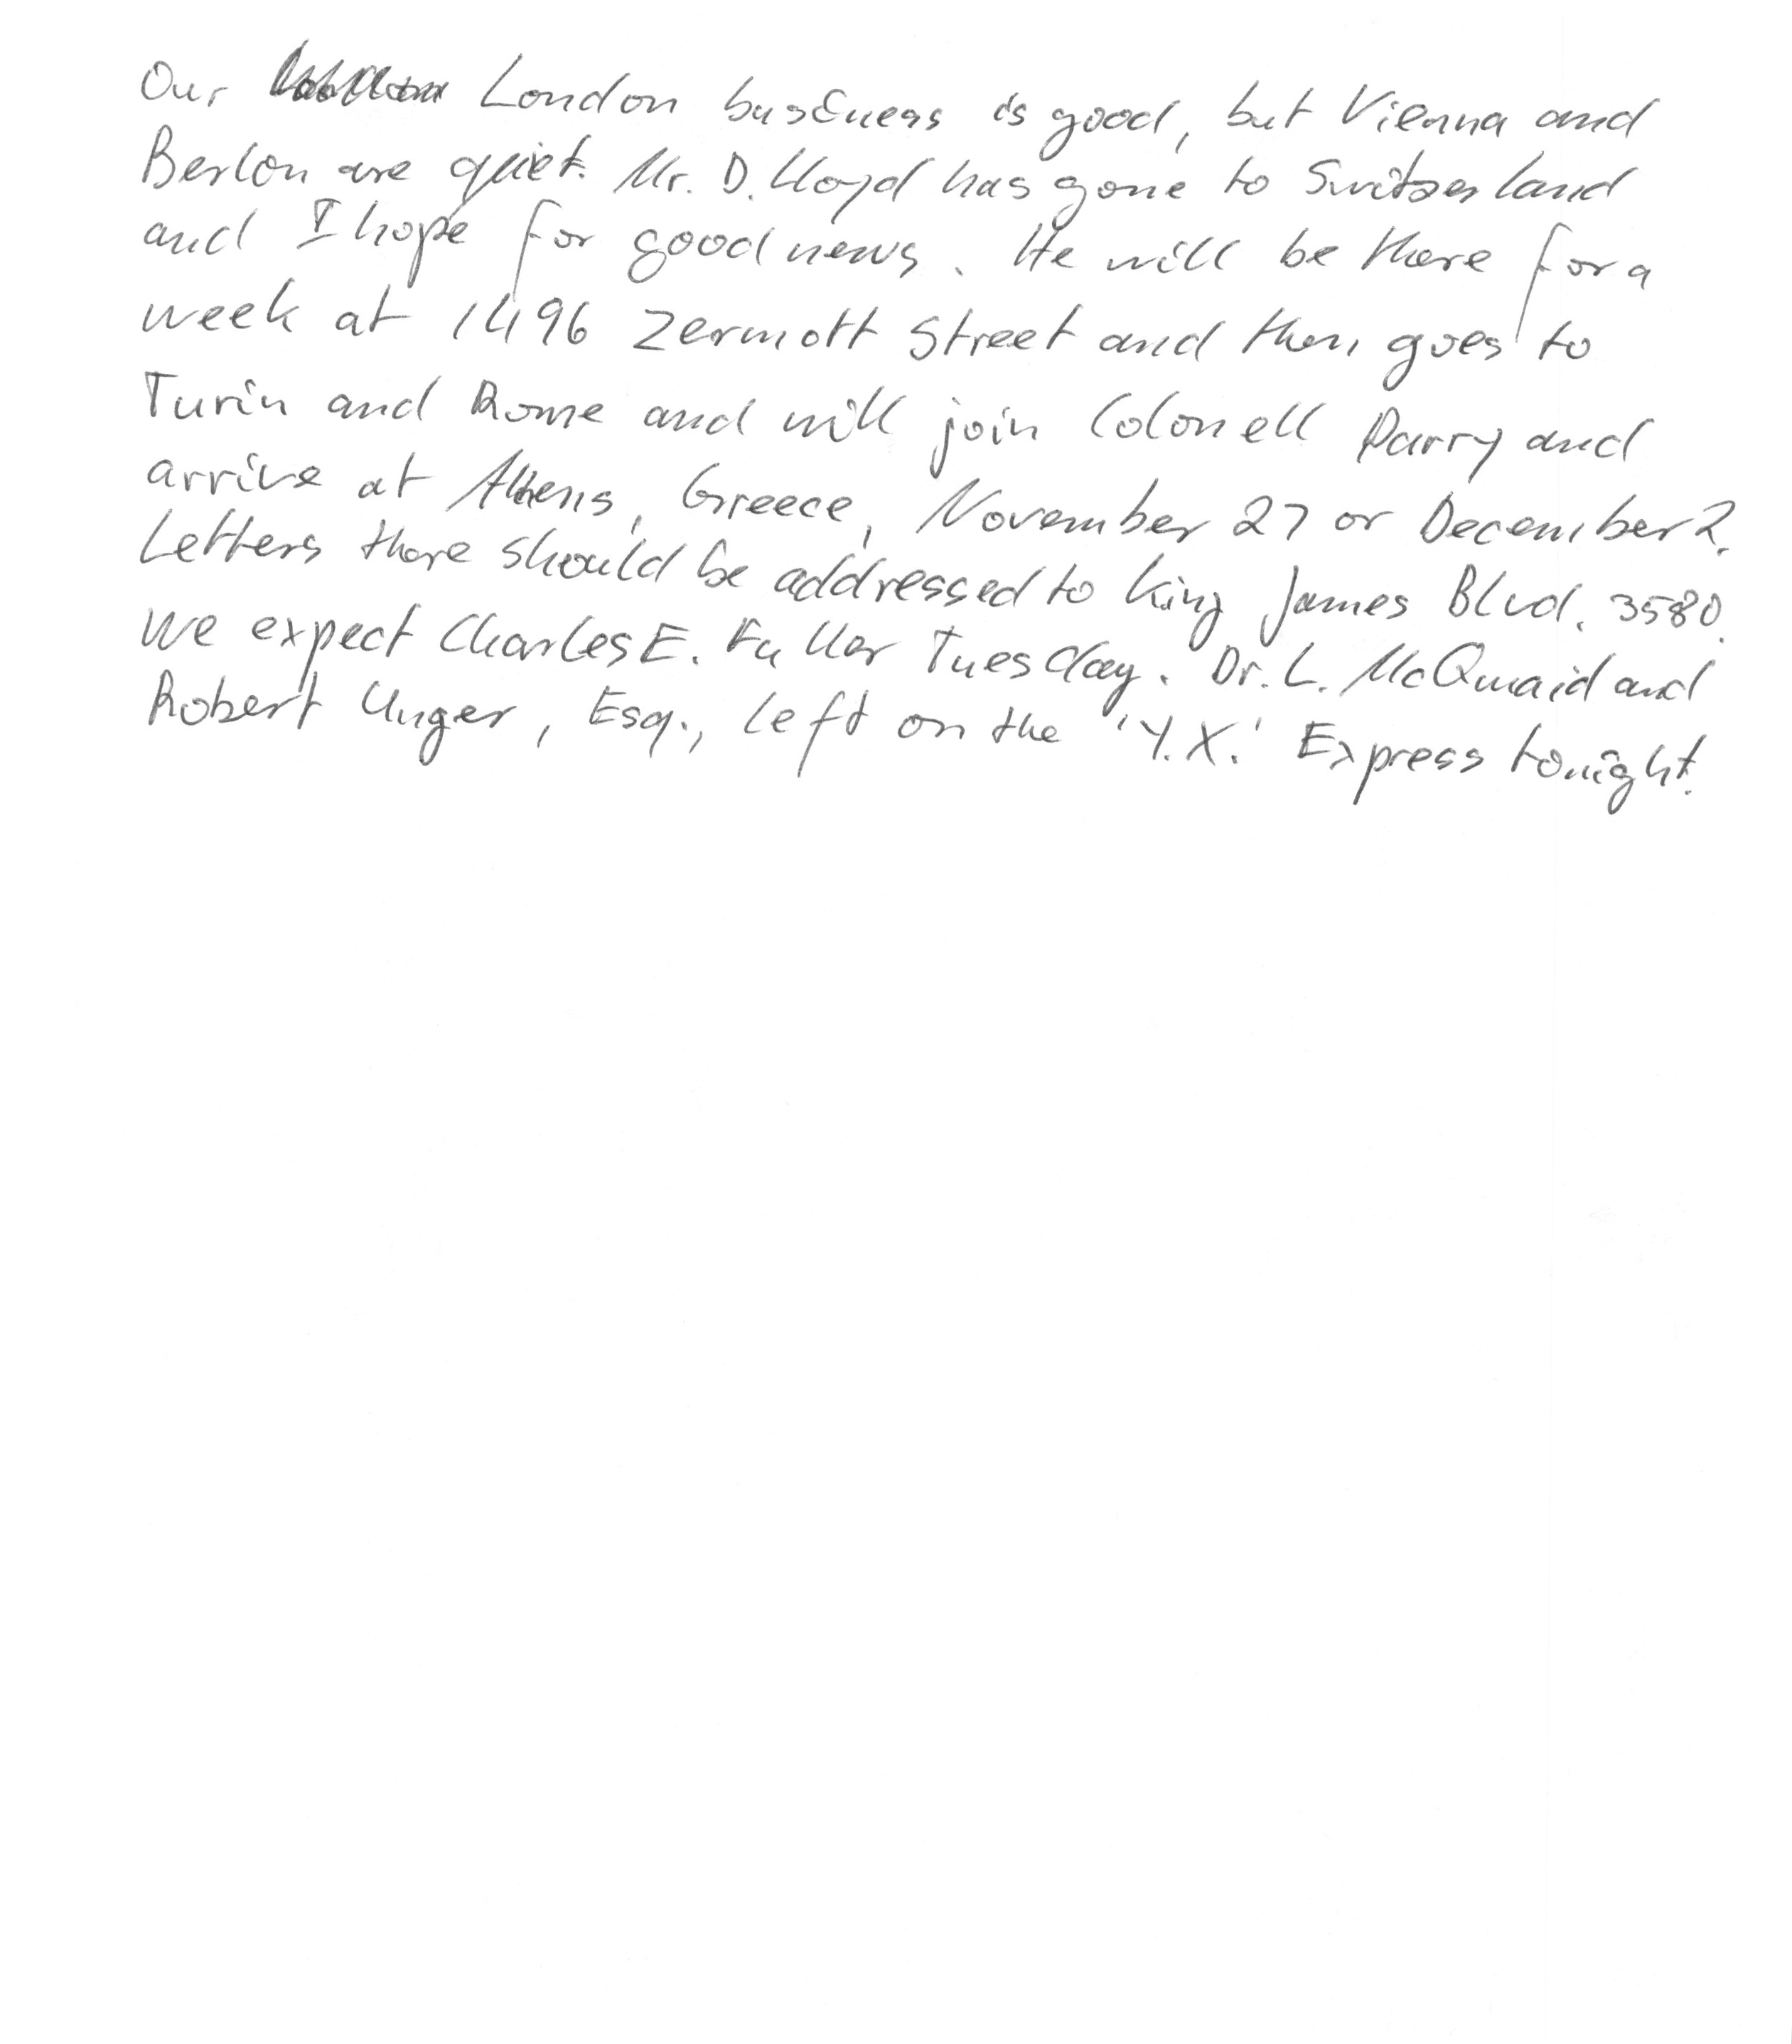 Our London business is good, but Vienna and
Berlin are quiet. Mr. D. Lloyd has gone to Switzerland
and I hope for good news. He will be there for a
week at 1496 Zermott Street and then goes to
Turin and Rome and will join Colonell Parry and
arrive at Athens, Greece, November 27 or December 2.
Letters there should be addressed to King James Blvd. 3580.
We expect Charles E. Fuller Tuesday. Dr. L. McQuaid and
Robert Unger, Esq., left on the 'Y.X.' Express tonight.